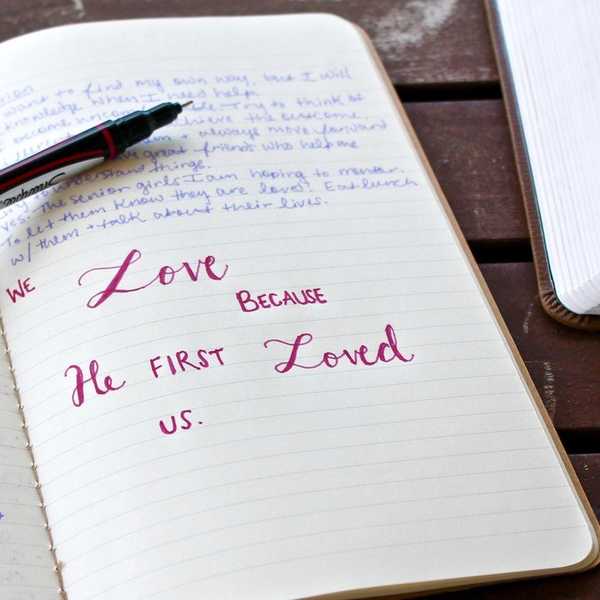 want to find my own way, but I will
knowledge when I need help.
become Try to think of
achieve the outcome.
+ always move forward
great friends who help me
understand things.
Yes! The senior girls I am hoping to mentor.
To let them know they are loved! Eat lunch
w/ them + talk about their lives.
Sharpie
WE Love
BECAUSE
He FIRST Loved
US.